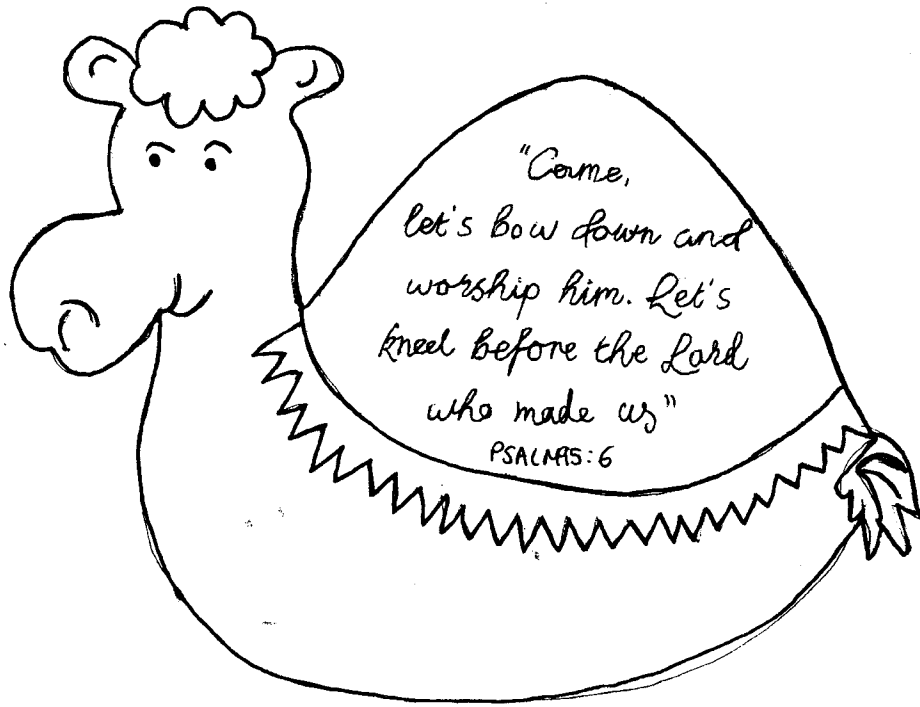 "Come,
let's bow down and
worship him. Let's
kneel before the Lord
who made us"
PSALM95:6